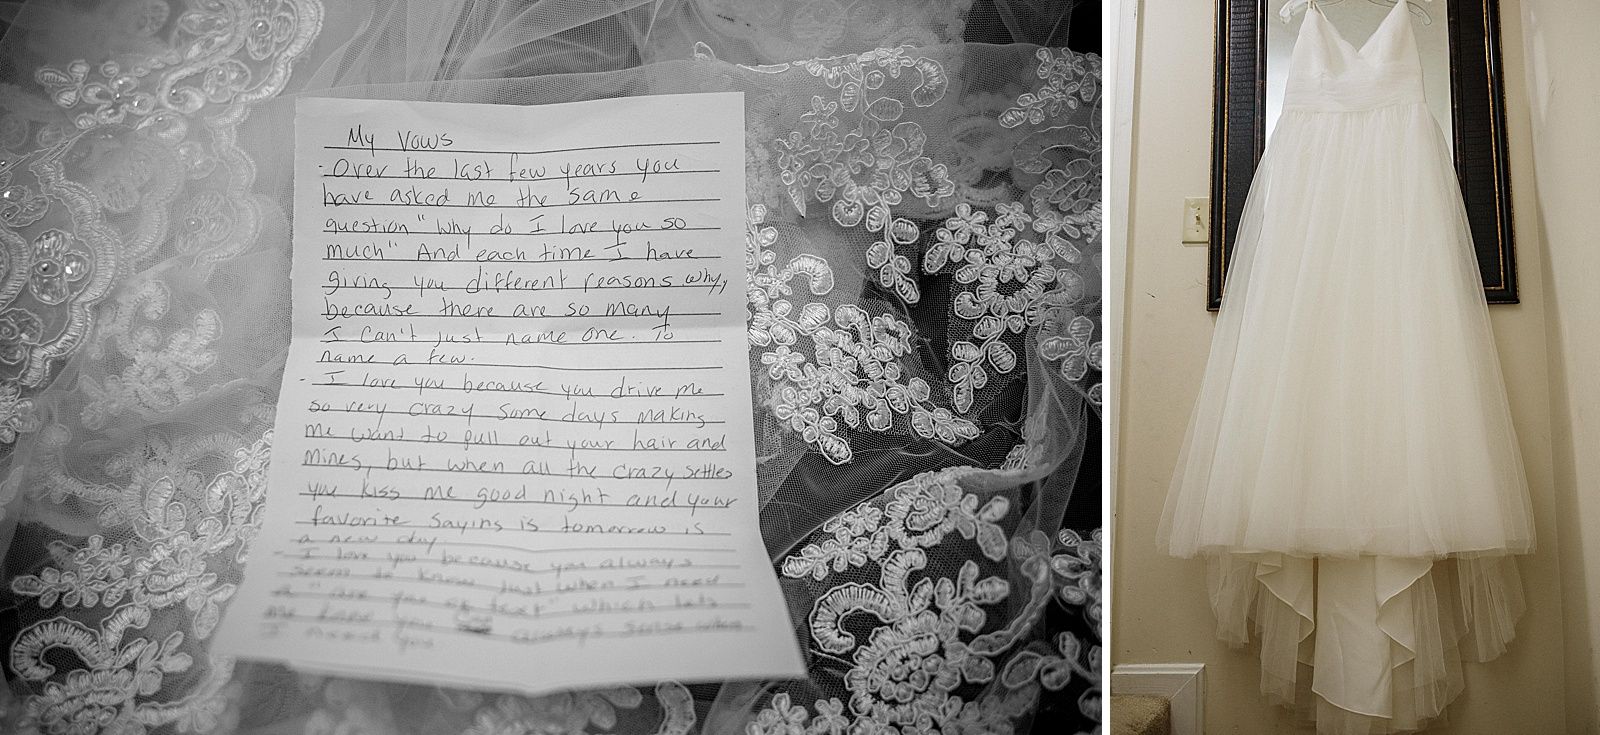 My Vows
- Over the last few years you
have asked me the same
question "Why do I love you so
much" And each time I have
giving you different reasons why,
because there are so many
I can't just name one. To
name a few.
- I love you because you drive me
so very crazy some days making
me want to pull out your hair and
mines, but when all the crazy settles
you kiss me good night and your
favorite saying is tomorrow is
a new day
- I love you because you always
seem to know just when I need
a "are you ok text" which lets
me know you always sense when
I need you